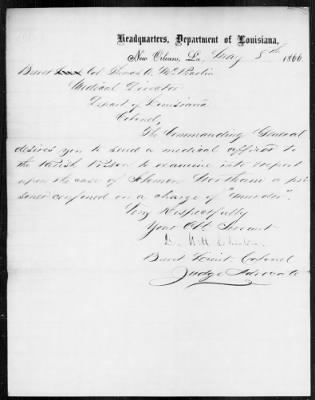 Headquarters, Department of Louisiana,
New Orleans, La., May 8th 1866
Brevt Col Thomas A. McParlin
Medical Director
Dep't of Louisiana
Colonel,
The Commanding General
desires you to send a medical officer to
the Parish Prison to examine into & report
upon the case of Solomon Wortham a pri
soner confined on a charge of "murder".
Very Respectfully
Your Obt Servant
Brevt Lieut Colonel
Judge Advocate